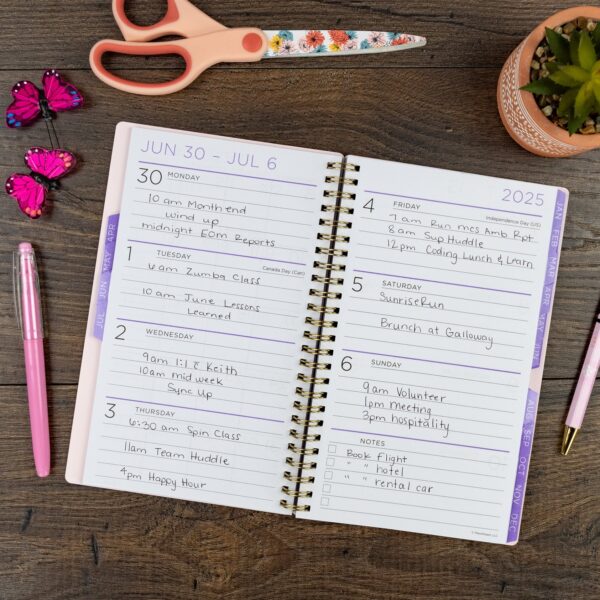 JUN 30 - JUL 6
30 MONDAY
10 am Month end
wind up
midnight EOM Reports
1 TUESDAY
Canada Day (Can)
6 am Zumba Class
10 am June Lessons
Learned
2 WEDNESDAY
9am 1:1 c̄ Keith
10am mid week
Sync Up
3 THURSDAY
6:30 am Spin Class
11am Team Huddle
4pm Happy Hour
2025
4 FRIDAY
Independence Day (US)
7 am Run mcs Amb Rpt
8am Sup Huddle
12pm Coding Lunch & Learn
5 SATURDAY
Sunrise Run
Brunch at Galloway
6 SUNDAY
9am Volunteer
1pm meeting
3pm hospitality
NOTES
Book flight
" " hotel
" " rental car
APR
MAY
JUN
JUL
JAN
FEB
MAR
APR
MAY
JUN
AUG
SEP
OCT
NOV
DEC